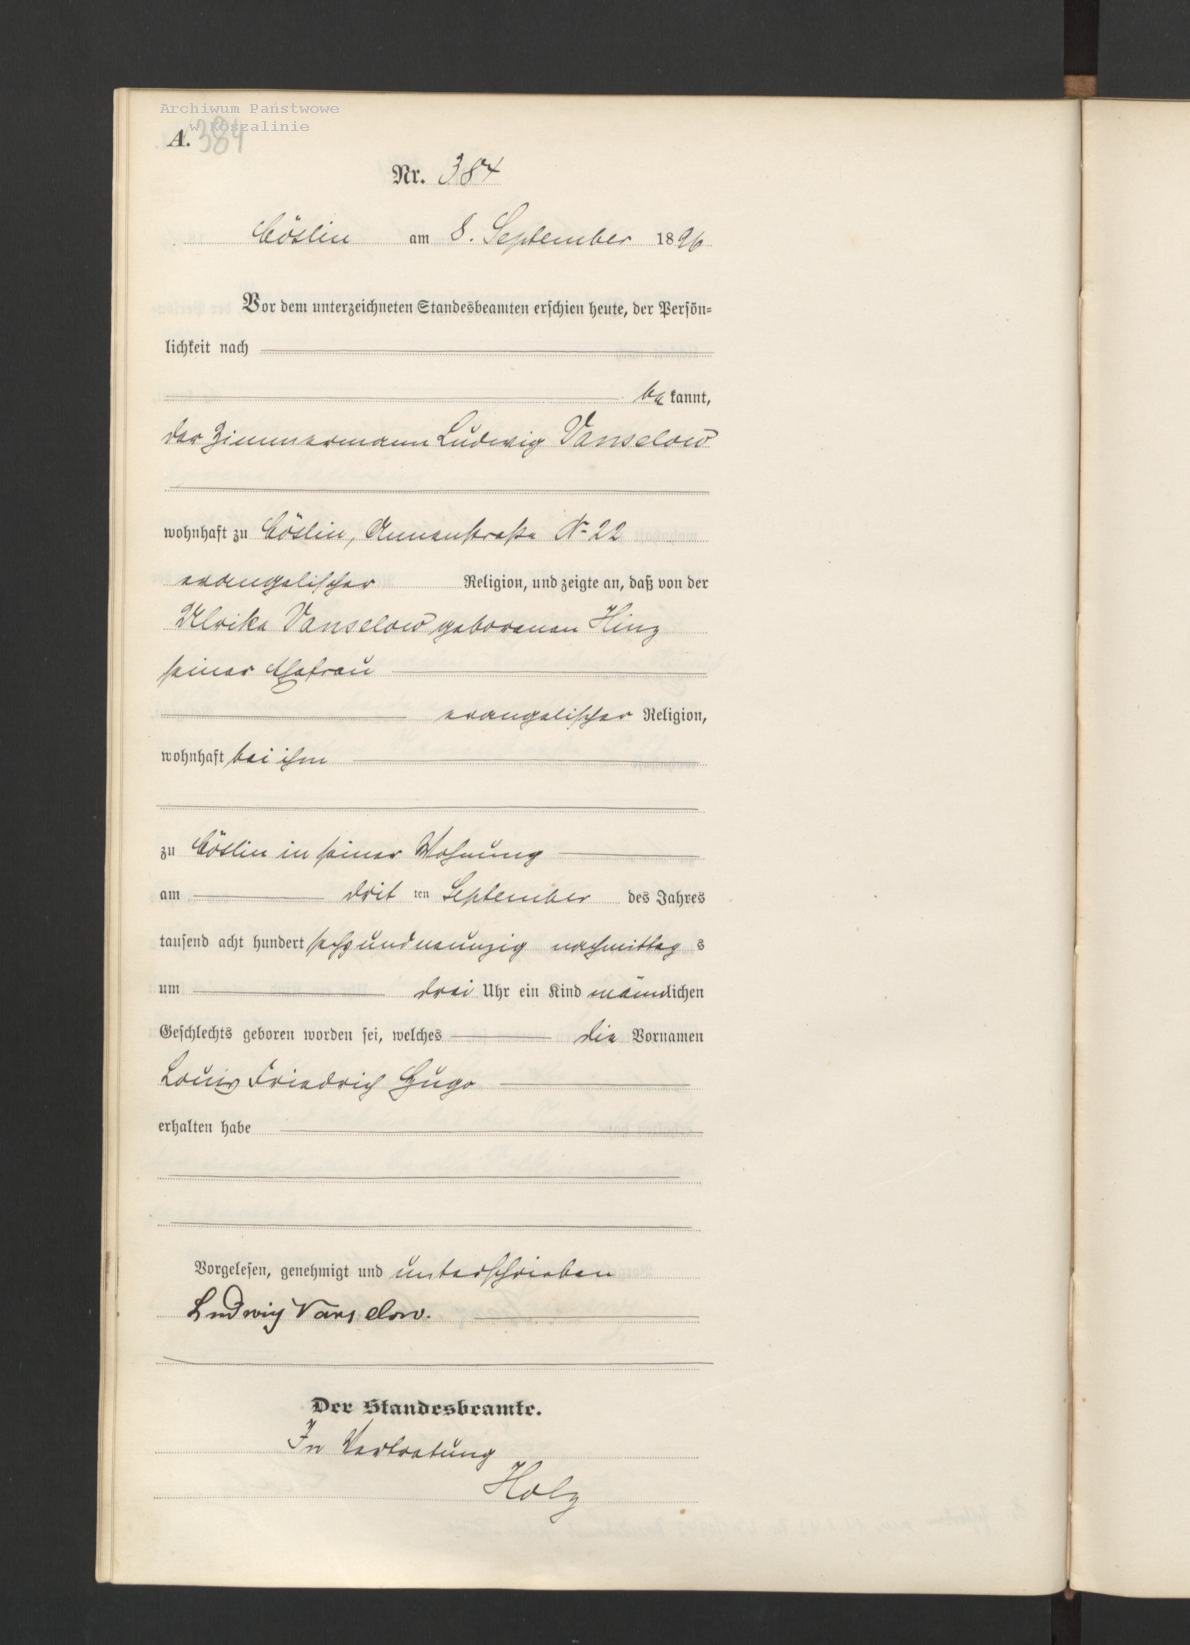 Archiwum Państwowe
w Koszalinie
A. 384
Nr. 384
Cöslin am 8. September 1896
Vor dem unterzeichneten Standesbeamten erschien heute, der Persön=
lichkeit nach
bekannt,
der Zimmermann Ludwig Vanselow
wohnhaft zu Cöslin, Annenstraße No 22
evangelischer Religion, und zeigte an, daß von der
Ulrike Vanselow geborenen Hinz
seiner Ehefrau
evangelischer Religion,
wohnhaft bei ihm
zu Cöslin in seiner Wohnung
am dritten September des Jahres
tausend acht hundert sechsundneunzig nachmittags
um drei Uhr ein Kind männlichen
Geschlechts geboren worden sei, welches die Vornamen
Louis Friedrich Hugo
erhalten habe
Vorgelesen, genehmigt und unterschrieben
Ludwig Vanselow.
Der Standesbeamte.
In Vertretung
Holz